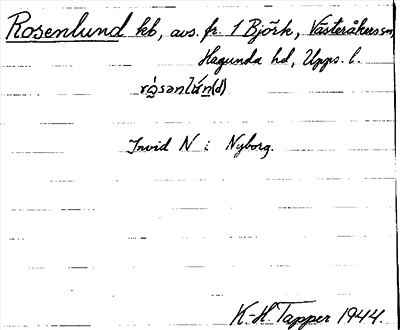 Rosenlund kb, avs. fr. 1 Björk, Västeråkers sn,
Hagunda hd, Upps. l.
rὼsənlún(d)
Invid N i Nyborg.
K.-H. Tapper 1944.